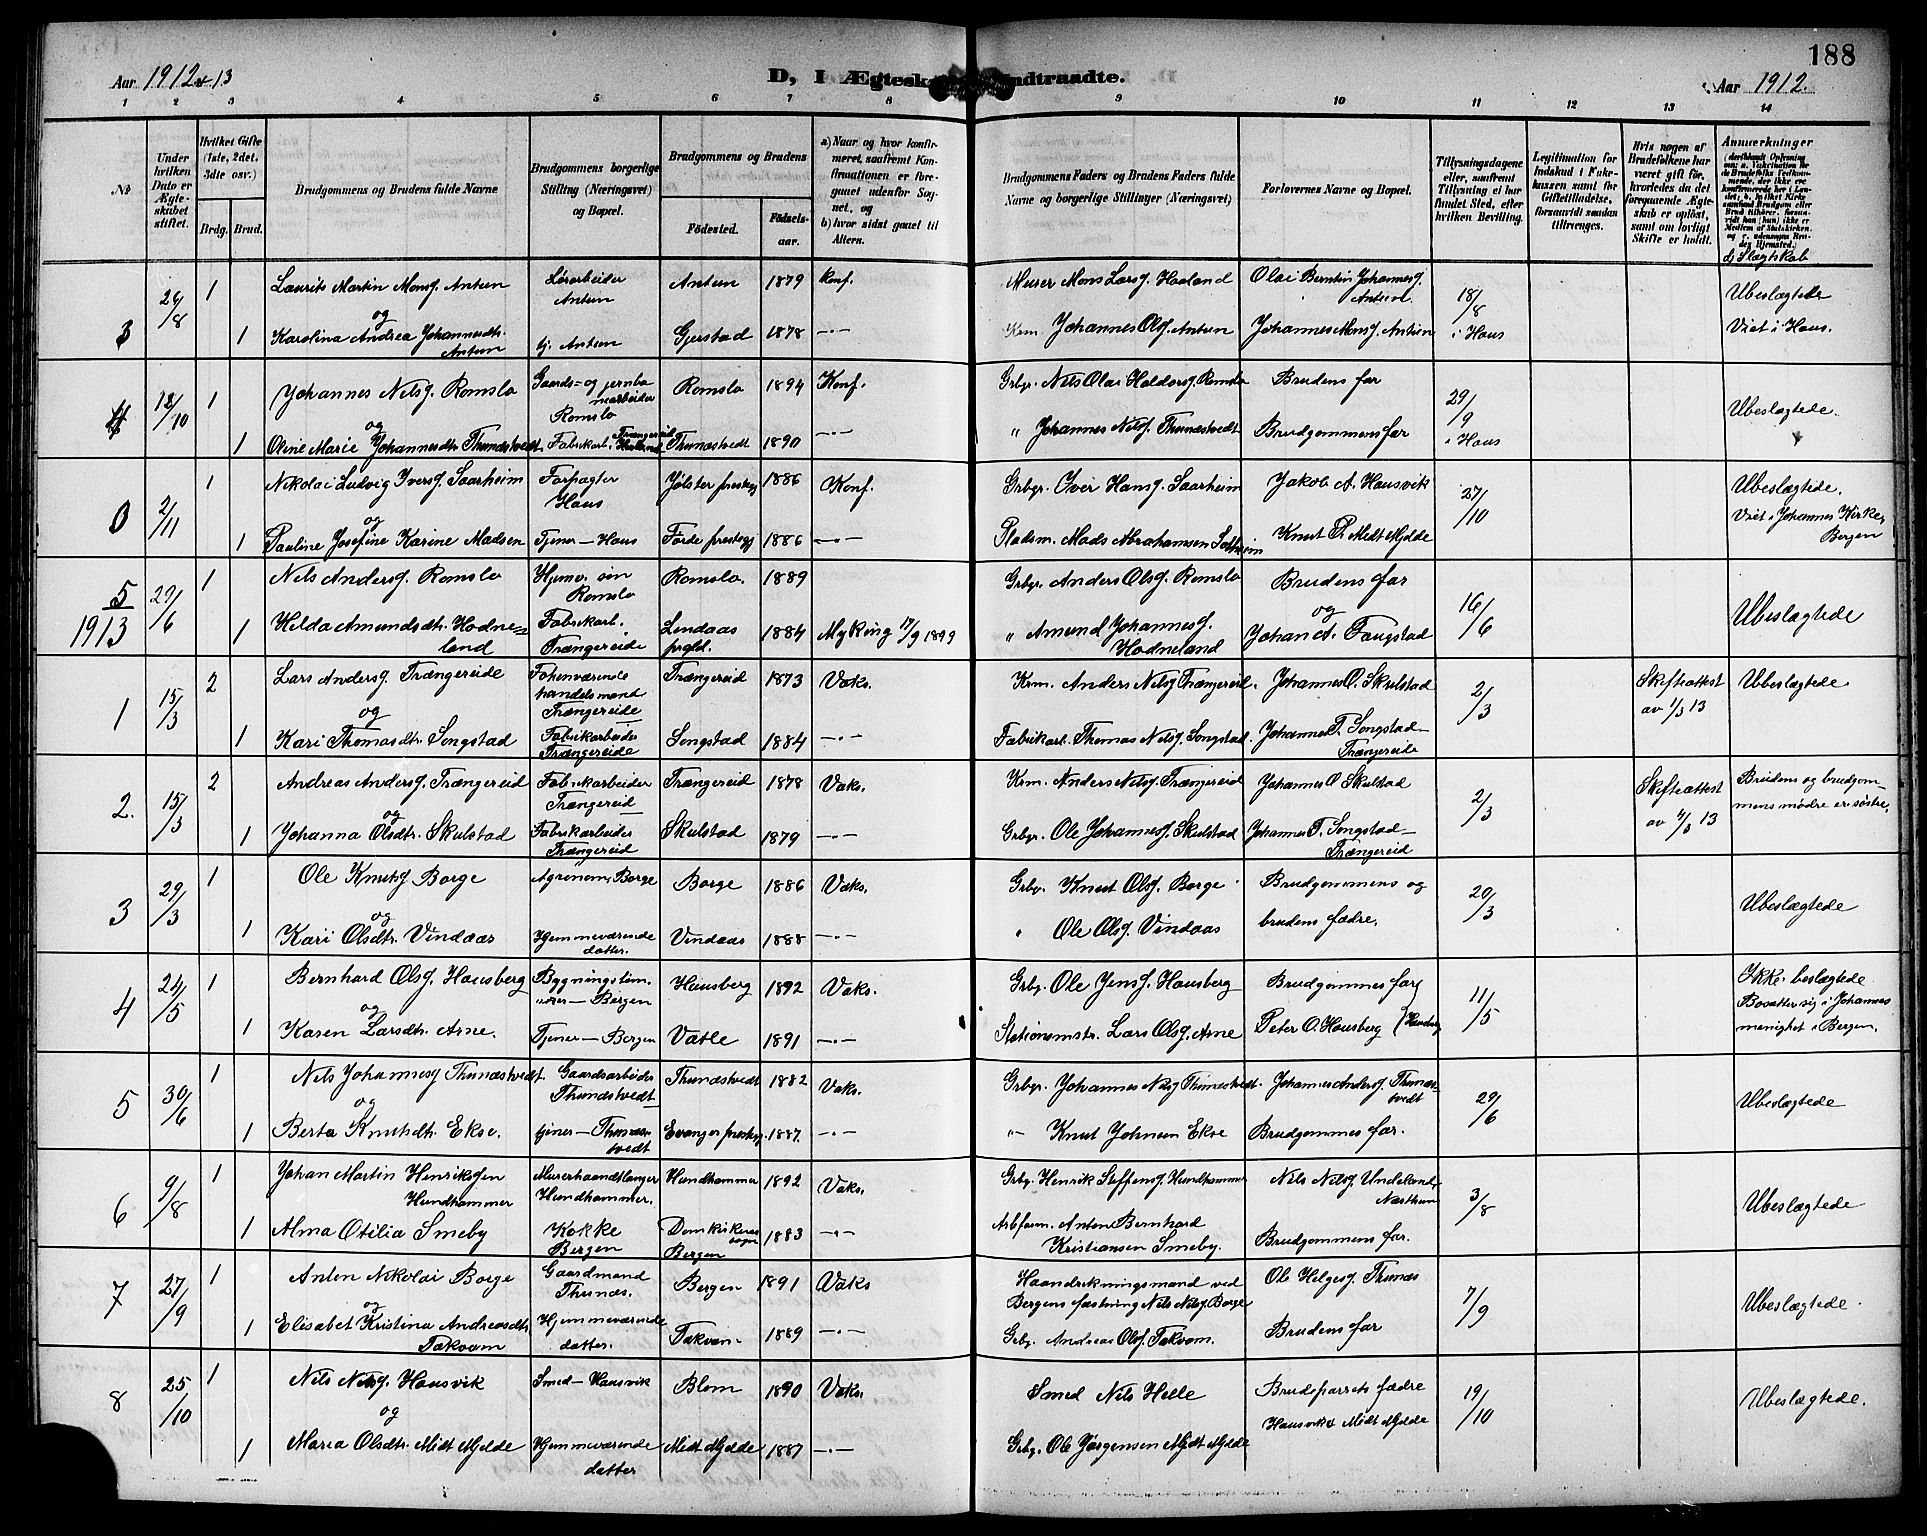 188
Aar 1912 & 13
D, I Ægtesk ndtraadte.
Aar 1912.
1 2 3 4 5 6 7 8 9 10 11 12 13 14
No
Under hvilken Dato er Ægteskabet stiftet.
Hvilket Gifte (1ste, 2det, 3die osv.)
Brdg. Brud.
Brudgommens og Brudens fulde Navne
Brudgommens borgerlige Stilling (Næringsvei) og Bopæl.
Brudgommens og Brudens
Fødested.
Fødsels-aar.
a) Naar og hvor konfirmeret, saafremt Konfirmationen er foregaaet udenfor Sognet, og
b) hvor sidst gaaet til Alters.
Brudgommens Faders og Brudens Faders fulde Navne og borgerlige Stillinger (Næringsvei)
Forlovernes Navne og Bopæl.
Tillysningsdagene eller, saafremt Tillysning ei har fundet Sted, efter hvilken Bevilling.
Legitimation for Indskud i Enkekassen samt for Giftetilladelse, forsaavidt saadan tiltrænges.
Hvis nogen af Brudefolkene har været gift før, hvorledes da det foregaaende Ægteskab er opløst, samt om lovligt Skifte er holdt.
Anmerkninger
d) Slægtskab
3 26/8 1 Laurits Martin Monsg. Antun Lørarbeider Antun Antun 1879 Konf. Murer Mons Larsg. Haaland Olai Berntin Johannesg. Antun. 18/8 i Haus Ubeslægtede
og
1 Karolina Andrea Johannesdtr. Antun tj. Antun Gjerstad 1878 —"— Krm. Johannes Olsg. Antun Johannes Monsg. Antun Viet i Haus.
4 18/10 1 Johannes Nilsg. Romslo Gaards- og jernbanearbeider Romslo Romslo 1894 Konf. Grbgr. Nils Olai Haldorsg. Romslo Brudens far 29/9 i Haus Ubeslægtede.
og
1 Oline Marie Johannesdtr. Thunæstvedt Fabrikarb. Trængereid Thunæstvedt 1890 —"— " Johannes Nilsg. Thunæstvedt Brudgommens far
0 2/11 1 Nikolai Ludvig Iversg. Saarheim Forpagter Haus Jølster prestegj 1886 Konf. Grbgr. Iver Hansg. Saarheim Jakob A. Hausvik 27/10 Ubeslægtede.
og
1 Pauline Josefine Karine Madsen Tjener — Haus Førde prestegj 1886 —"— Pladsm. Mads Abrahamsen Solheim Knut P. Midt Mjelde Viet i Johannes Kirke, Bergen
5 29/6 1 Nils Andersg. Romslo Hjemv. søn Romslo Romslo. 1889 Grbgr. Anders Olsg. Romslo Brudens far og 16/6 Ubeslægtede
1913
1 Helda Amundsdtr. Hodneland Fabrikarb. Trængereide Lindaas prgld. 1884 Myking 17/9 1899 " Amund Johannesg. Hodneland Johan A. Faugstad
1 15/3 2 Lars Andersg. Trængereide Forhenværende handelsmand Trængereide Trængereid 1873 Vaks. Krm. Anders Nilsg Trængereid. Johannes O. Skulstad 2/3 Skifteattest av 1/3 13 Ubeslægtede
og
1 Kari Thomasdtr. Songstad Fabrikarbeider Trængereide Songstad 1884 —"— Fabrikarb. Thomas Nilsg. Songstad. Johannes T. Songstad — Trængereide
2. 15/3 2 Andreas Andersg. Trængereid Fabrikarbeider Trængereid Trængereid 1878 Vaks. Krm. Anders Nilsg. Trængereid Johannes O. Skulstad 2/3 Skifteattest av 1/3 13 Brudens og brudgommens mødre er søstre.
og
1 Johanna Olsdtr. Skulstad Fabrikarbeider Trængereid Skulstad 1879 —"— Grbgr. Ole Johannesg. Skulstad Johannes T. Songstad — Trængereid
3 29/3 1 Ole Knutsg Borge Agronom, Borge Borge 1886 Vaks. Grbgr. Knut Olsg. Borge Brudgommens og brudens fædre. 20/3 Ubeslægtede
og
1 Kari Olsdtr. Vindaas Hjemmeværende datter. Vindaas 1888 —"— " Ole Olsg. Vindaas
4 24/5 1 Bernhard Olsg. Hausberg Bygningstømmer — Bergen Hausberg 1892 Vaks. Grbgr. Ole Jensg. Hausberg Brudgommens far 11/5 Ikke beslægtede
og
1 Karen Larsdtr. Arne. Tjener — Bergen Vatle 1891 —"— Stationsmstr. Lars Olsg. Arne Peter O. Hausberg Bosætter sig i Johannes menighet i Bergen.
5 30/6 1 Nils Johannesg Thunæstvedt Gaardsarbeider Thunæstvedt Thunæstvedt 1882 Vaks. Grbgr. Johannes Nilsg Thunæstvedt. Johannes Andersg. Thunæstvedt 29/6 Ubeslægtede
og
1 Berta Knutsdtr. Ekse. tjener — Thunæstvedt Evanger prestegj. 1887. —"— "— Knut Johnsen Ekse Brudgommens far.
6 9/8 1 Johan Martin Henriksgen Hundhammer Murerhaandtlanger Hundhammer. Hundhammer 1892 Vaks. Grbgr. Henrik Steffensg. Hundhammer Nils Nilsg. Undeland, Næstun 3/8 Ubeslægtede
1 Alma Otilia Smeby Kokke Bergen Domkirkens sogn Bergen 1883 —"— Arbform. Anton Bernhard Kristiansen Smeby. Brudgommens far.
7 27/9 1 Anton Nikolai Borge Gaardmand Thunæs. Bergen 1891 Vaks Haandrækningsmand ved Bergens fæstning Nils Nilsg. Borge Ole Helgesg. Thunæs 7/9 Ubeslægtede.
og
1 Elisabet Kristina Andreasdtr. Takvam Hjemmeværende datter. Takvam 1889 —"— Grbgr. Andreas Olsg. Takvam. Brudens far
8 25/10 1 Nils Nilsg. Hausvik Smed — Hausvik Blom 1890 Vaks. Smed Nils Helle Brudeparrets fædre 19/10 Ubeslægtede.
og
1 Maria Olsdtr. Midt Mjelde Hjemmeværende datter Midt Mjelde 1887 —"— Grbgr. Ole Jørgensen Midt Mjelde Hausvik & Midt Mjelde